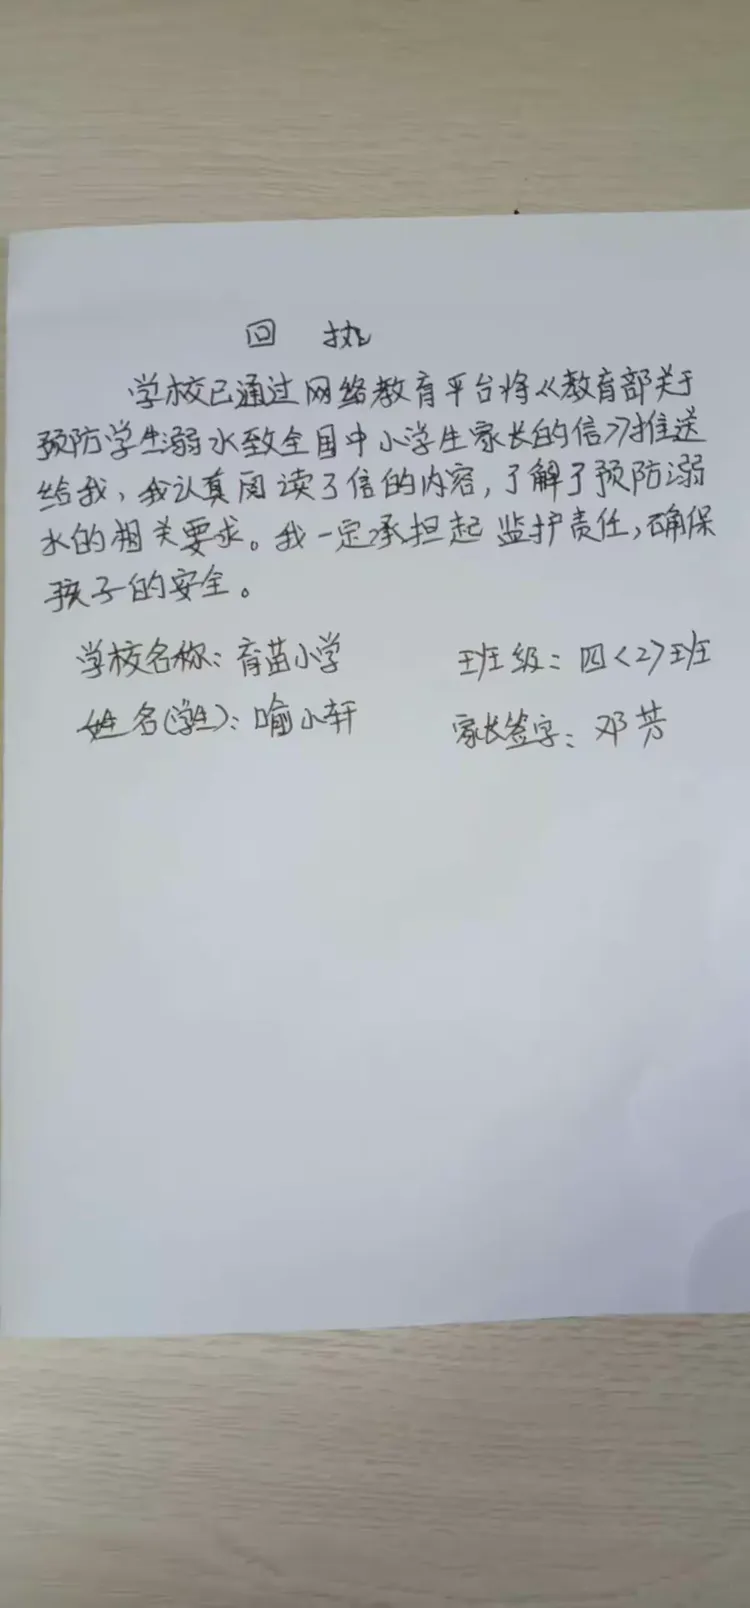 回 执
学校已通过网络教育平台将《教育部关于
预防学生溺水致全国中小学生家长的信》推送
给我，我认真阅读了信的内容，了解了预防溺
水的相关要求。我一定承担起监护责任，确保
孩子的安全。
学校名称：育苗小学 班级：四〈2〉班
姓名(学生)：喻小轩 家长签字：邓芳